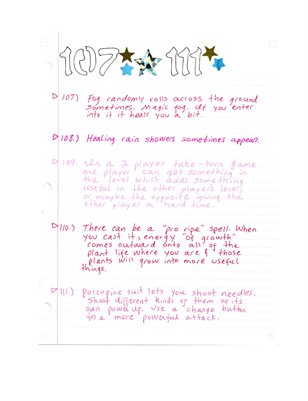 107 111
107.) Fog randomly rolls across the ground
sometimes. Magic fog. If you enter
into it it heals you a bit.
108.) Healing rain showers sometimes appear.
109. In a 2 player take-turn game
one player can get something in
the level which adds something
useful in the other players level,
or maybe the opposite giving the
other player a hard time.
110.) There can be a "pro ripe" spell. When
you cast it, energy "of growth"
comes outward onto all of the
plant life where you are & those
plants will grow into more useful
things.
111.) Porcupine suit lets you shoot needles.
Shoot different kinds of them w/ its
own power up. Use a change button
for a more powerful attack.